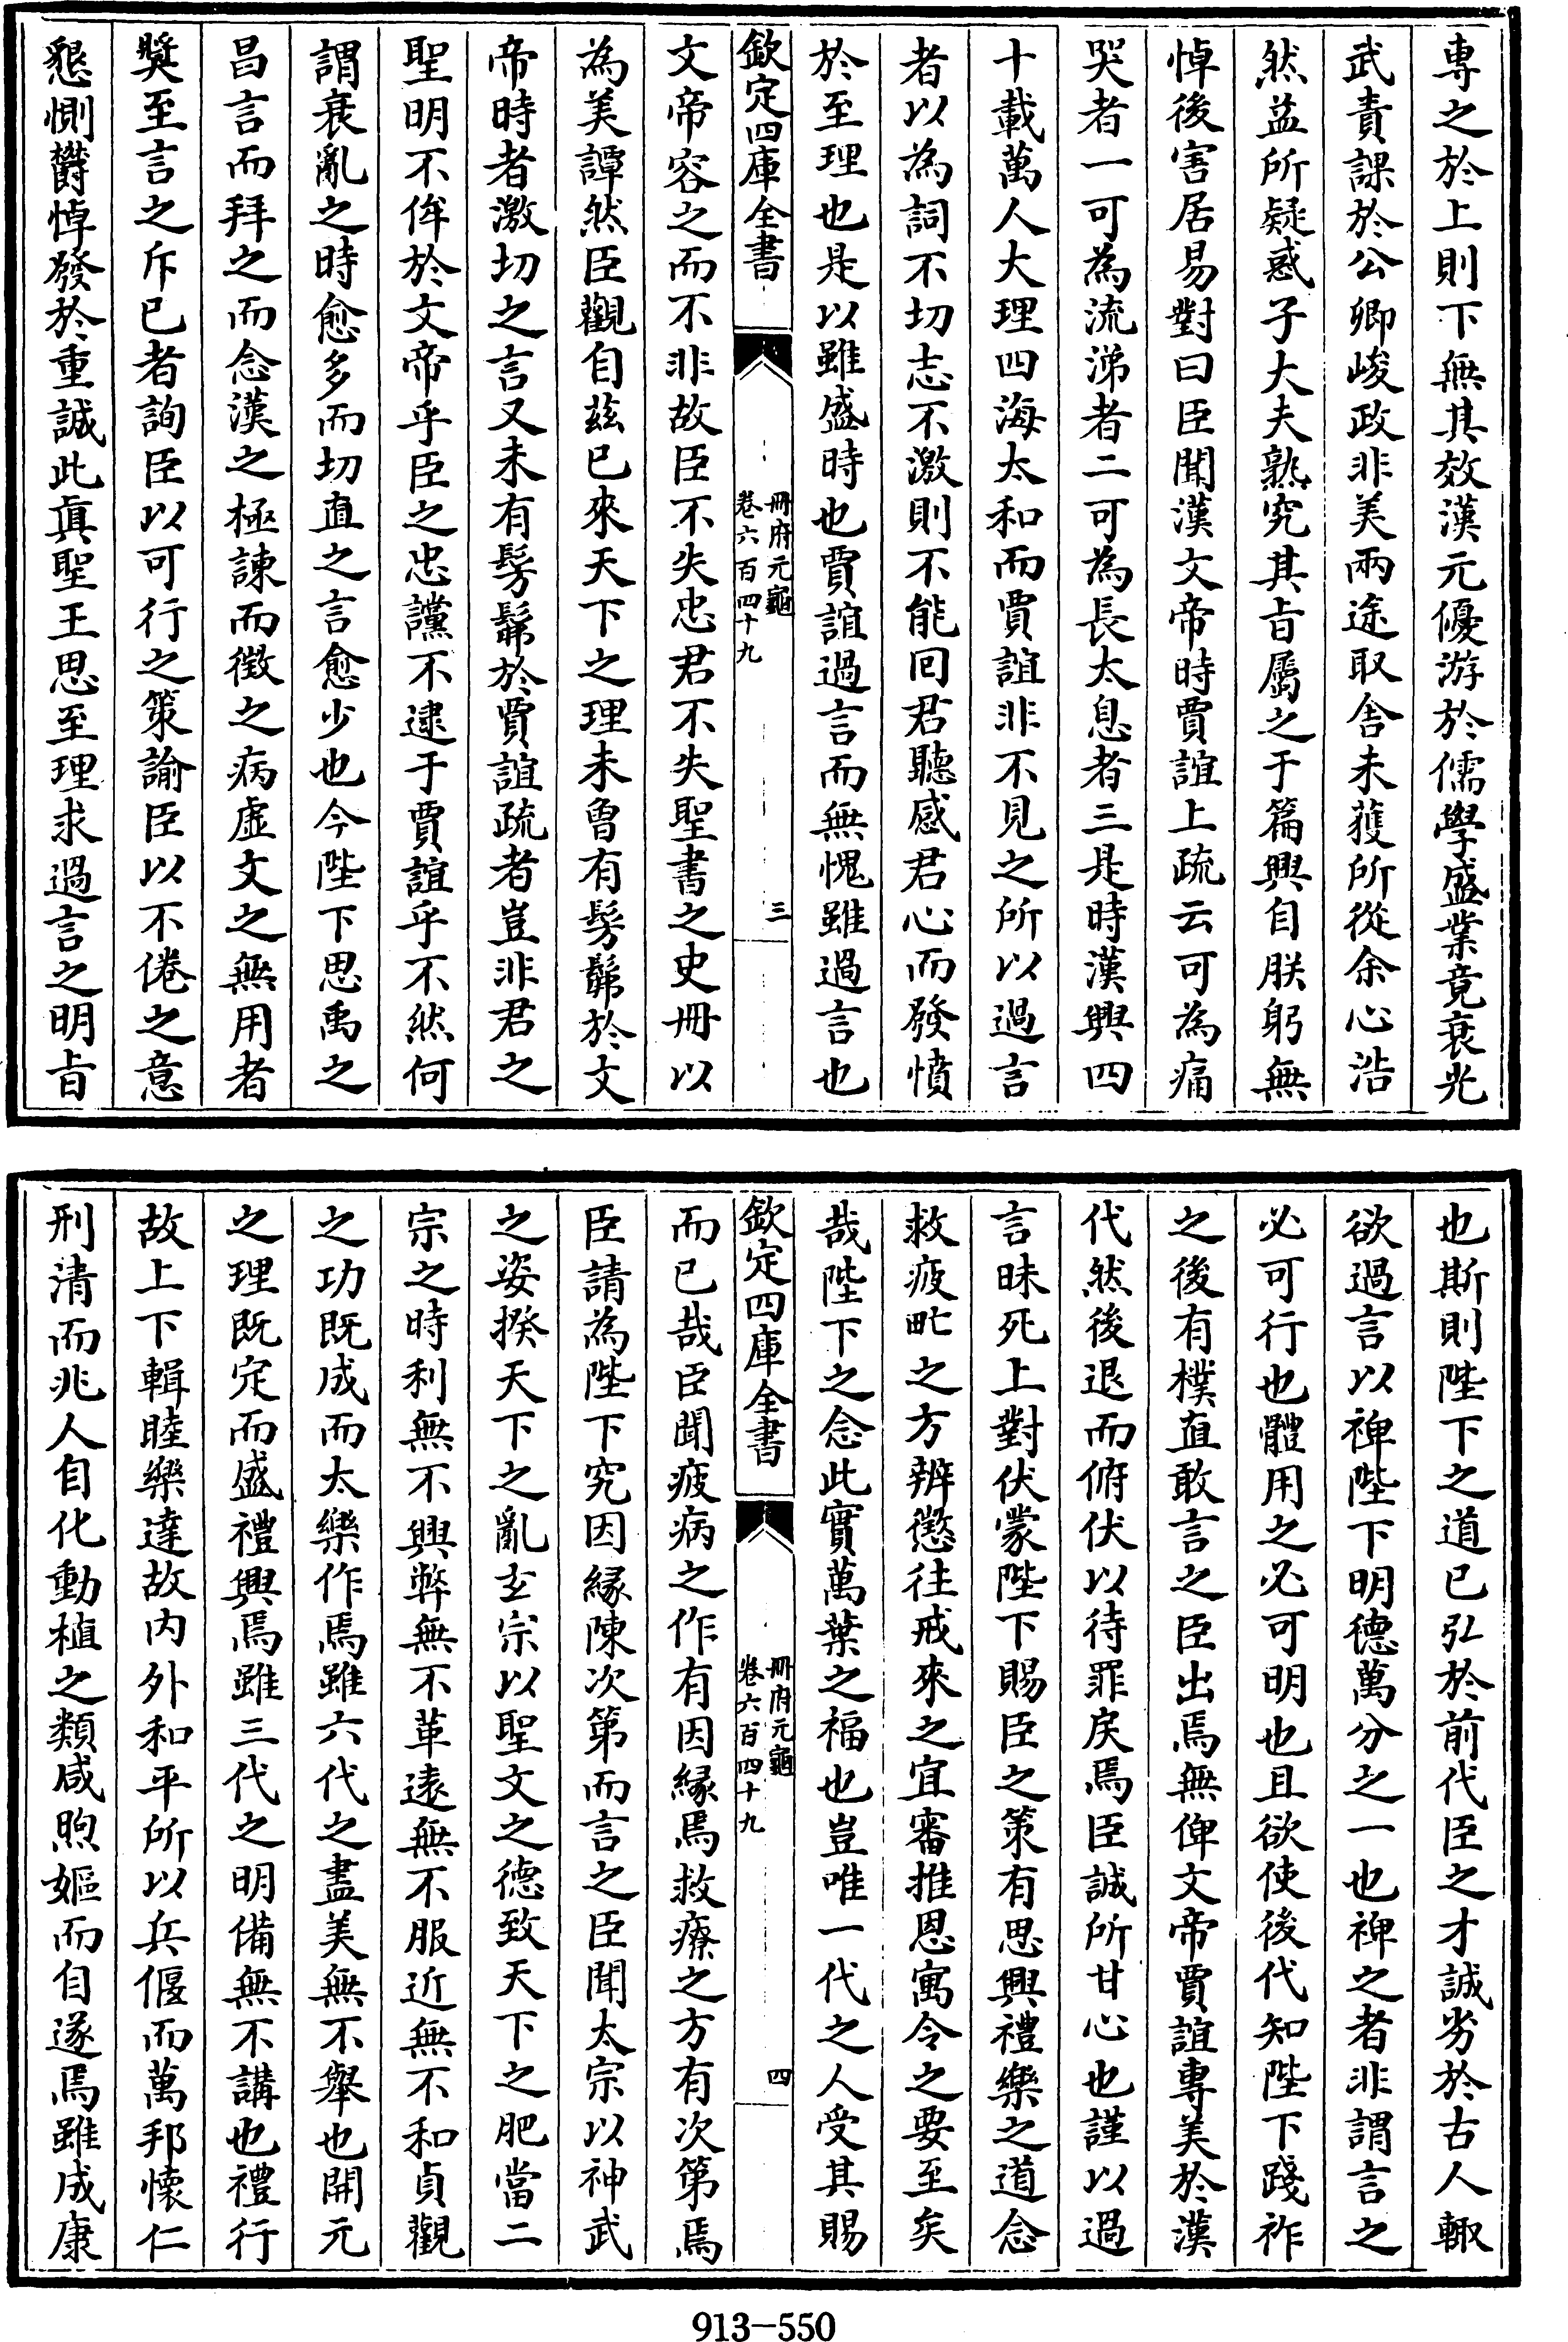 專之於上則下無其效漢元優游於儒學盛業竟衰光
武責課於公卿峻政非美兩途取舍未獲所從余心浩
然益所疑惑子大夫熟究其旨屬之于篇興自朕躬無
悼後害居易對曰臣聞漢文帝時賈誼上疏云可為痛
哭者一可為流涕者二可為長太息者三是時漢興四
十載萬人大理四海太和而賈誼非不見之所以過言
者以為詞不切志不激則不能回君聽感君心而發憤
於至理也是以雖盛時也賈誼過言而無愧雖過言也
欽定四庫全書
冊府元龜
卷六百四十九
三
文帝容之而不非故臣不失忠君不失聖書之史冊以
為美譚然臣觀自茲已來天下之理未曾有髣髴於文
帝時者激切之言又未有髣髴於賈誼疏者豈非君之
聖明不侔於文帝乎臣之忠讜不逮于賈誼乎不然何
謂衰亂之時愈多而切直之言愈少也今陛下思禹之
昌言而拜之而念漢之極諫而徵之病虛文之無用者
獎至言之斥已者詢臣以可行之策諭臣以不倦之意
懇惻欝悼發於重誠此真聖王思至理求過言之明旨
也斯則陛下之道已弘於前代臣之才誠劣於古人輙
欲過言以裨陛下明德萬分之一也裨之者非謂言之
必可行也體用之必可明也且欲使後代知陛下踐祚
之後有樸直敢言之臣出焉無俾文帝賈誼專美於漢
代然後退而俯伏以待罪戾焉臣誠所甘心也謹以過
言昧死上對伏蒙陛下賜臣之策有思興禮樂之道念
救疲甿之方辨懲往戒來之宜審推恩寓令之要至矣
哉陛下之念此實萬葉之福也豈唯一代之人受其賜
欽定四庫全書
冊府元龜
卷六百四十九
四
而已哉臣聞疲病之作有因緣焉救療之方有次第焉
臣請為陛下究因緣陳次第而言之臣聞太宗以神武
之姿揆天下之亂玄宗以聖文之德致天下之肥當二
宗之時利無不興弊無不革遠無不服近無不和貞觀
之功既成而太樂作焉雖六代之盡美無不舉也開元
之理既定而盛禮興焉雖三代之明備無不講也禮行
故上下輯睦樂達故內外和平所以兵偃而萬邦懷仁
刑清而兆人自化動植之類咸煦嫗而自遂焉雖成康
913-550